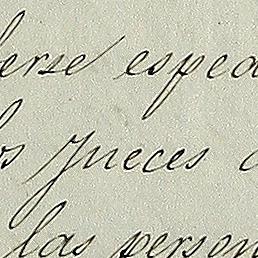 erse esped
os Jueces
las person